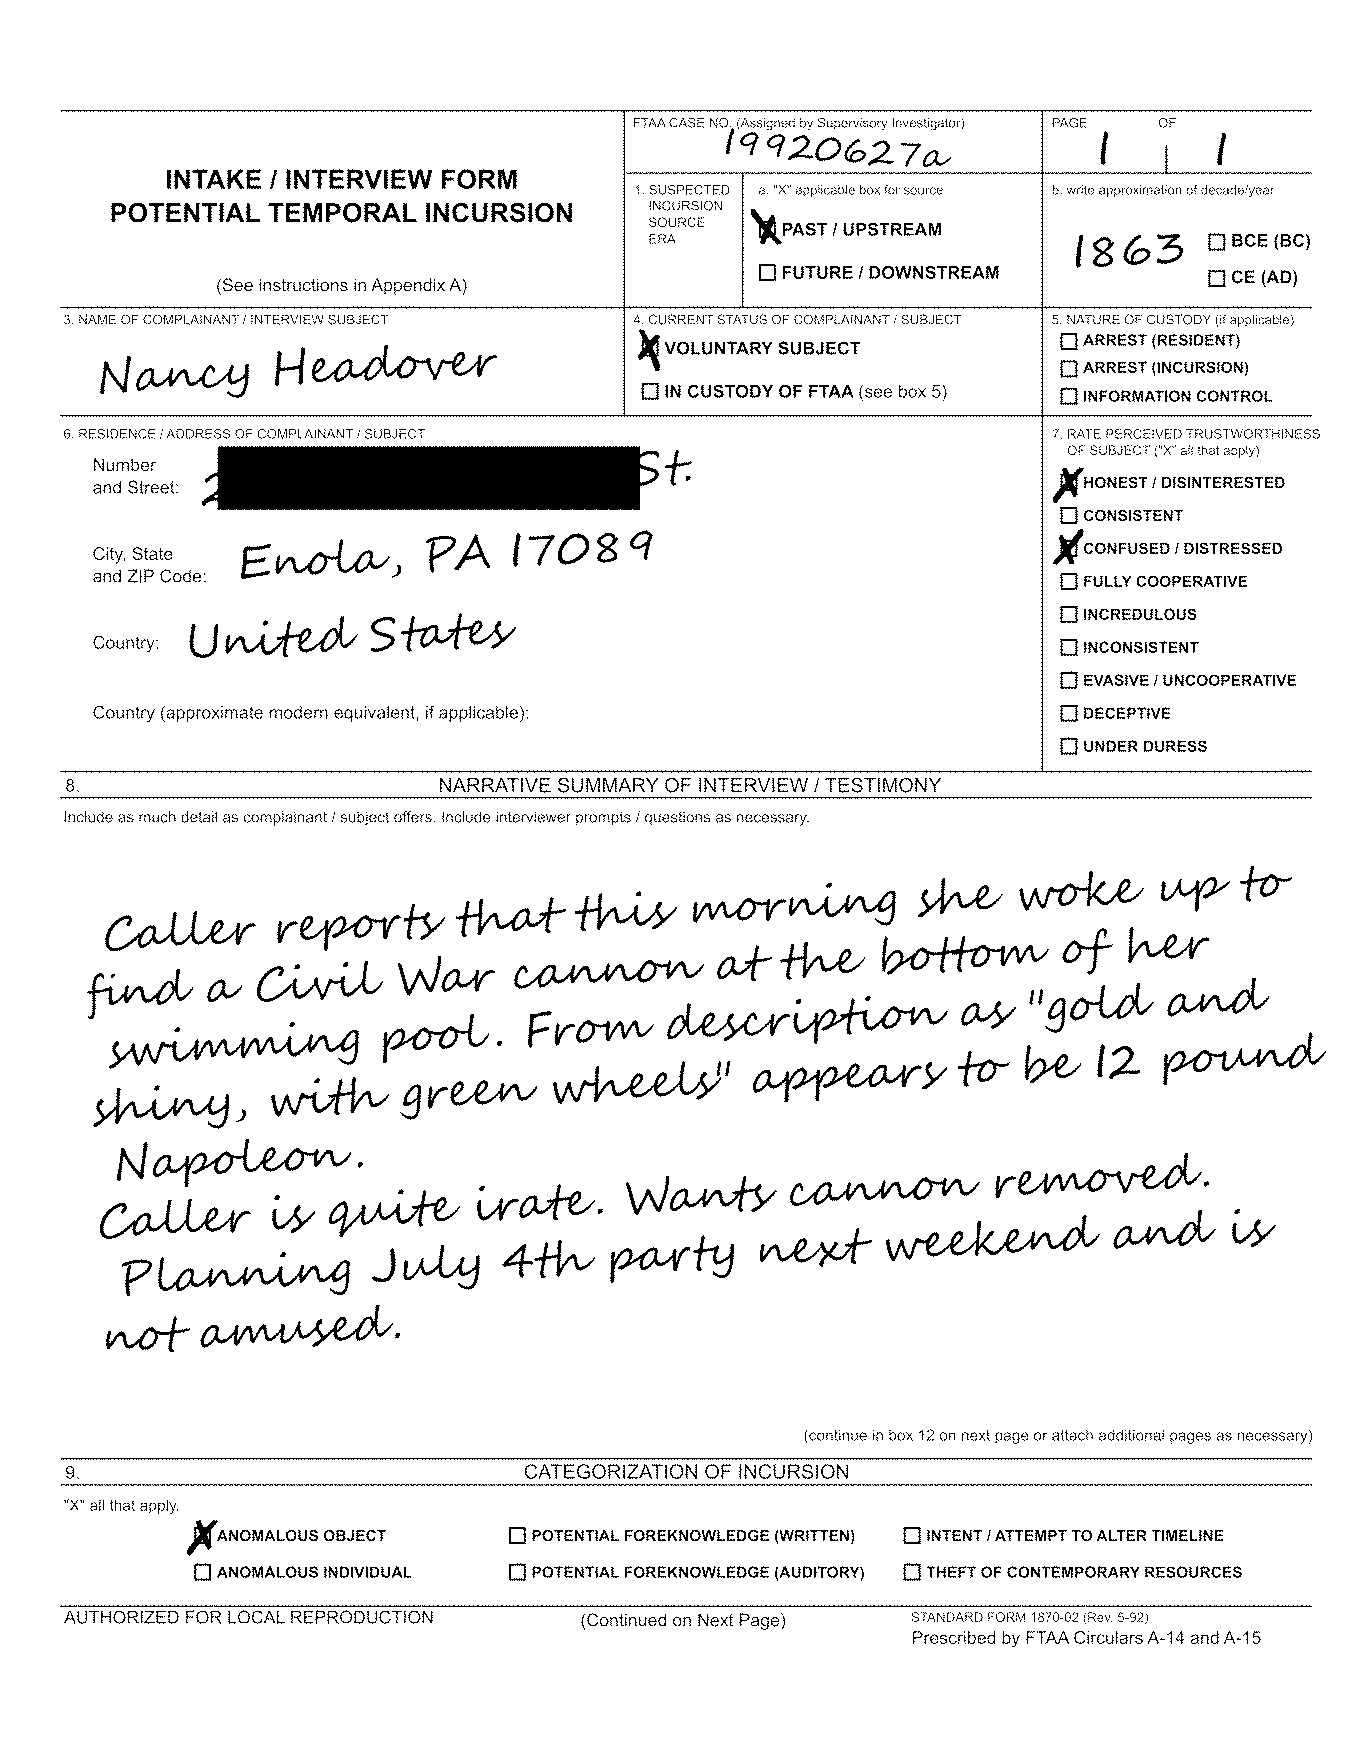 INTAKE / INTERVIEW FORM
POTENTIAL TEMPORAL INCURSION
(See instructions in Appendix A)
FTAA CASE NO. (Assigned by Supervisory Investigator)
19920627a
PAGE OF
1 1
1. SUSPECTED
INCURSION
SOURCE
ERA
a. "X" applicable box for source
PAST / UPSTREAM
FUTURE / DOWNSTREAM
b. write approximation of decade/year
1863
BCE (BC)
CE (AD)
3. NAME OF COMPLAINANT / INTERVIEW SUBJECT
Nancy Headover
4. CURRENT STATUS OF COMPLAINANT / SUBJECT
VOLUNTARY SUBJECT
IN CUSTODY OF FTAA (see box 5)
5. NATURE OF CUSTODY (if applicable)
ARREST (RESIDENT)
ARREST (INCURSION)
INFORMATION CONTROL
6. RESIDENCE / ADDRESS OF COMPLAINANT / SUBJECT
Number
and Street: St.
City, State
and ZIP Code: Enola, PA 17089
Country: United States
Country (approximate modern equivalent, if applicable):
7. RATE PERCEIVED TRUSTWORTHINESS
OF SUBJECT ("X" all that apply)
HONEST / DISINTERESTED
CONSISTENT
CONFUSED / DISTRESSED
FULLY COOPERATIVE
INCREDULOUS
INCONSISTENT
EVASIVE / UNCOOPERATIVE
DECEPTIVE
UNDER DURESS
8. NARRATIVE SUMMARY OF INTERVIEW / TESTIMONY
Include as much detail as complainant / subject offers. Include interviewer prompts / questions as necessary.
Caller reports that this morning she woke up to
find a Civil War cannon at the bottom of her
swimming pool. From description as "gold and
shiny, with green wheels" appears to be 12 pound
Napoleon.
Caller is quite irate. Wants cannon removed.
Planning July 4th party next weekend and is
not amused.
(continue in box 12 on next page or attach additional pages as necessary)
9. CATEGORIZATION OF INCURSION
"X" all that apply.
ANOMALOUS OBJECT
ANOMALOUS INDIVIDUAL
POTENTIAL FOREKNOWLEDGE (WRITTEN)
POTENTIAL FOREKNOWLEDGE (AUDITORY)
INTENT / ATTEMPT TO ALTER TIMELINE
THEFT OF CONTEMPORARY RESOURCES
AUTHORIZED FOR LOCAL REPRODUCTION
(Continued on Next Page)
STANDARD FORM 1870-02 (Rev. 5-92)
Prescribed by FTAA Circulars A-14 and A-15